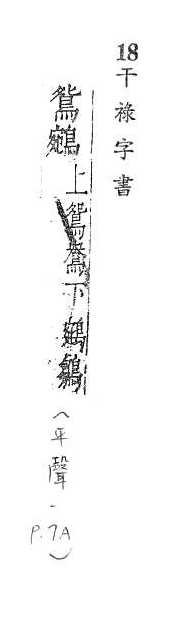 18干祿字書
鴛鵷上鴛鴦下鵷鶵(平聲-P.7A)